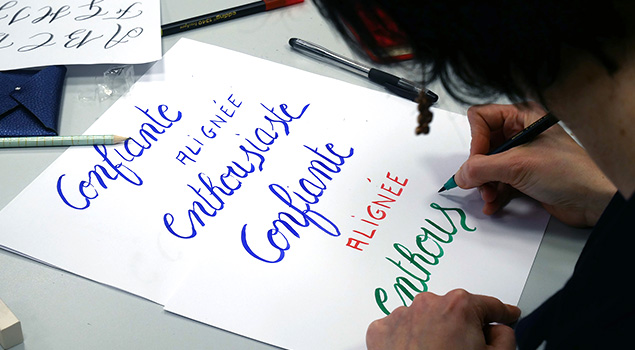 A B C D
F G H I J
Confiante
ALIGNÉE
enthousiaste
Confiante
ALIGNÉE
enthous